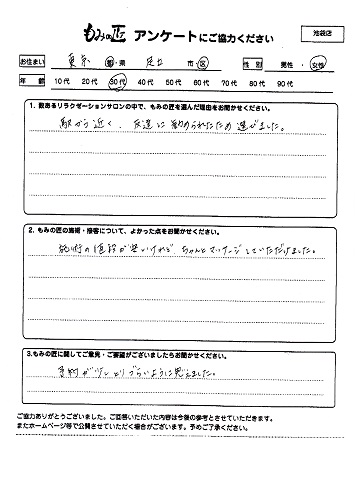 もみの匠 アンケートにご協力ください
池袋店
お住まい 東京 都・県 足立 市・区 性別 男性・女性
年齢 10代 20代 30代 40代 50代 60代 70代 80代 90代
1. 数あるリラクゼーションサロンの中で、もみの匠を選んだ理由をお聞かせください。
駅から近く、友達に勧められたため選びました。
2. もみの匠の施術・接客について、よかった点をお聞かせください。
施術の値段が安いけれど、ちゃんとマッサージしていただけました。
3.もみの匠に関してご意見・ご要望がございましたらお聞かせください。
予約が少しとりづらいように思えました。
ご協力ありがとうございました。ご回答いただいた内容は今後の参考とさせていただきます。
またホームページ等で公開させていただく場合がございます。予めご了承ください。